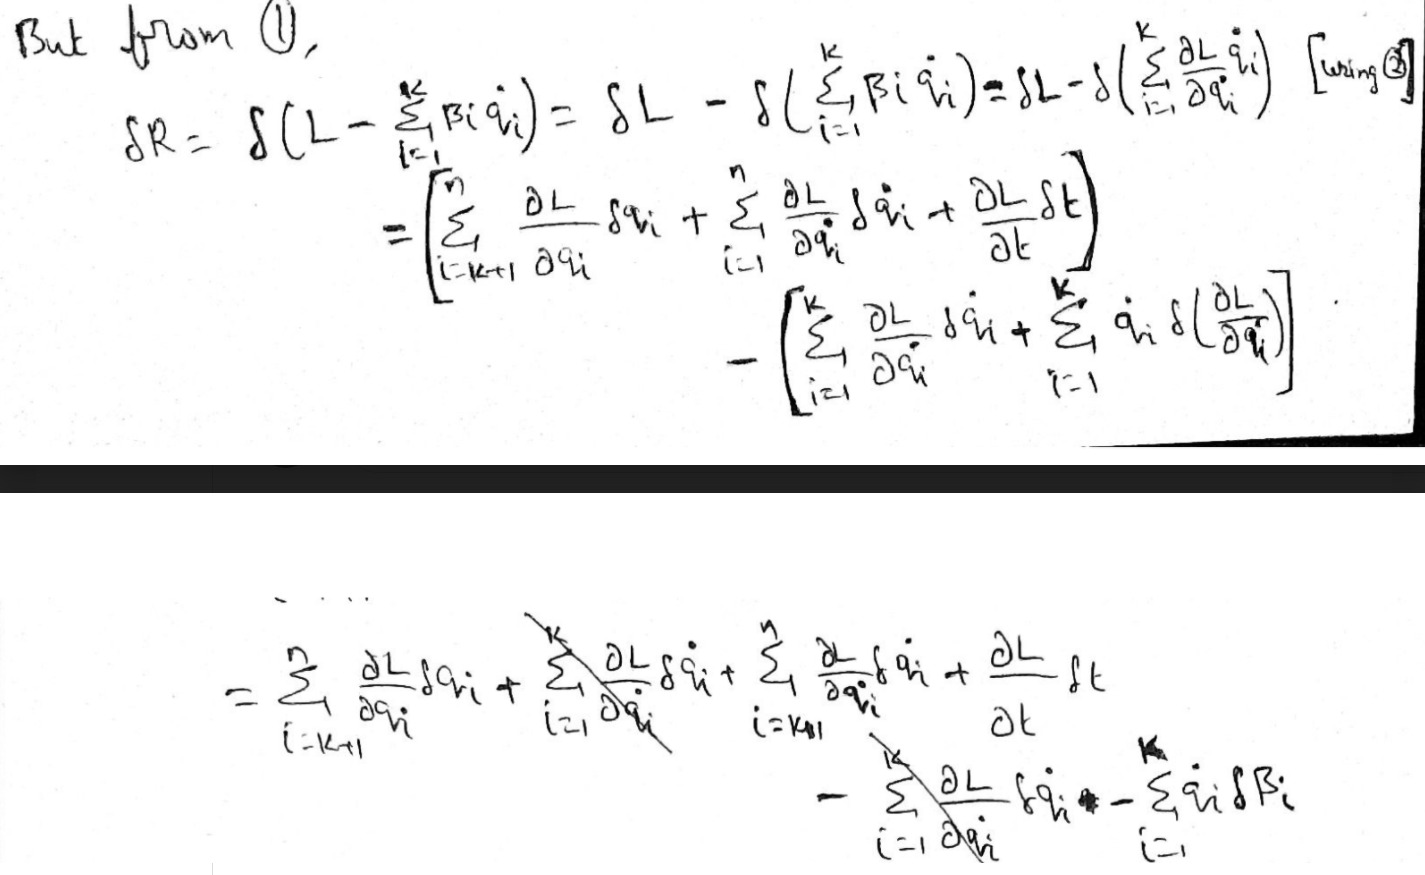 But from ①,
δR = δ(L - Σ_{i=1}^{k} βi q̇i) = δL - δ(Σ_{i=1}^{k} βi q̇i) = δL - δ(Σ_{i=1}^{k} ∂L/∂q̇i q̇i) [using ②]
= [Σ_{i=k+1}^{n} ∂L/∂qi δqi + Σ_{i=1}^{n} ∂L/∂q̇i δq̇i + ∂L/∂t δt]
- [Σ_{i=1}^{k} ∂L/∂q̇i δq̇i + Σ_{i=1}^{k} q̇i δ(∂L/∂q̇i)]
= Σ_{i=k+1}^{n} ∂L/∂qi δqi + Σ_{i=1}^{k} ∂L/∂q̇i δq̇i + Σ_{i=k+1}^{n} ∂L/∂q̇i δq̇i + ∂L/∂t δt
- Σ_{i=1}^{k} ∂L/∂q̇i δq̇i - Σ_{i=1}^{k} q̇i δβi